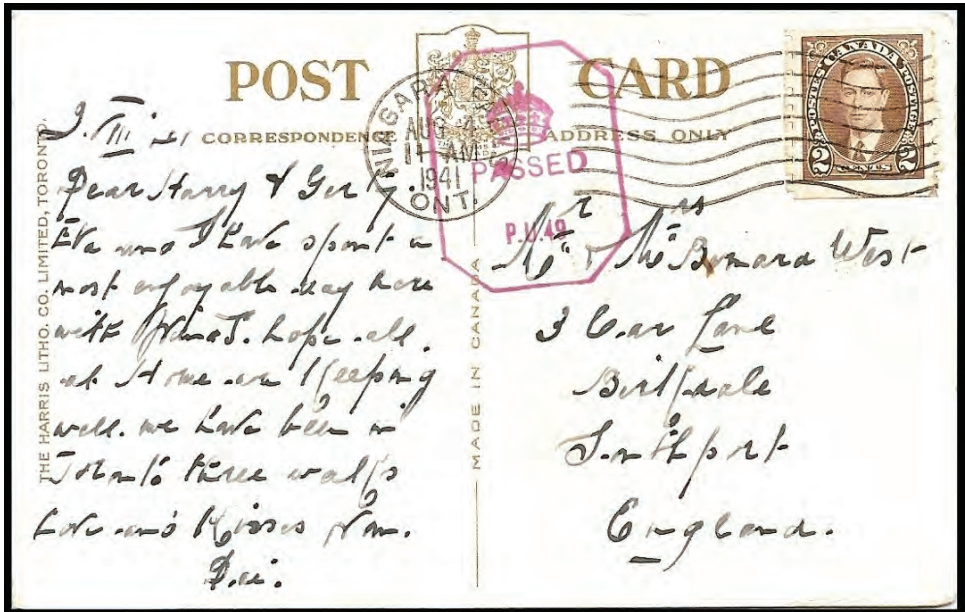 POST CARD
CORRESPONDENCE ADDRESS ONLY
NIAGARA
AUG 4
11 AM
1941
ONT.
PASSED
P.U.49
POSTES CANADA POSTAGE
2 CENTS 2
THE HARRIS LITHO. CO. LIMITED, TORONTO.
MADE IN CANADA
Dear Harry &
and I have spent a
most enjoyable day here
with hope all
at Home are Keeping
well. we have been in
Toronto three
Love and Kisses
Mr & Mrs West
Lane
Birkdale
Southport
England.